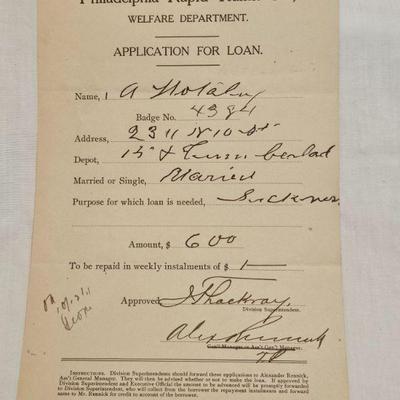 Philadelphia Rapid Transit Co.,
WELFARE DEPARTMENT.
APPLICATION FOR LOAN.
Name, 1 A
Badge No. 4384
Address, 2311 N 10 St
Depot, 15 & Cumberland
Married or Single, Married
Purpose for which loan is needed, Sickness
Amount, $ 6 00
To be repaid in weekly instalments of $ 1
OK
Approved, Thackray
Division Superintendent.
Alex Rennick
Gen'l Manager or Ass't Gen'l Manager.
INSTRUCTIONS. Division Superintendents should forward these applications to Alexander Rennick,
Ass't General Manager. They will then be advised whether or not to make the loan. If approved by
Division Superintendent and Executive Official the amount to be advanced will be promptly forwarded
to Division Superintendent, who will collect from the borrower the repayment instalments and forward
same to Mr. Rennick for credit to account of the borrower.